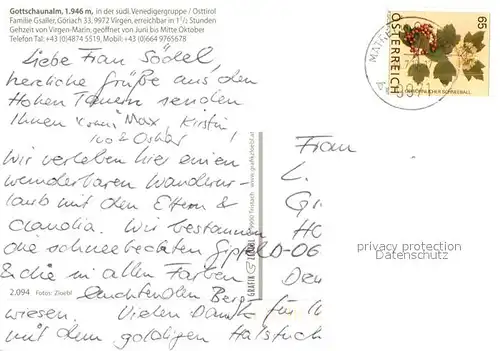 Gottschaunalm, 1.946 m, in der südl. Venedigergruppe / Osttirol
Familie Gsaller, Göriach 33, 9972 Virgen, erreichbar in 1½ Stunden
Gehzeit von Virgen-Marin, geöffnet von Juni bis Mitte Oktober
Telefon Tal: +43 (0)4874 5519, Mobil: +43 (0)664 9765678
Liebe Frau Södel,
herzliche Grüße aus den
Hohen Tauern senden
Ihnen Max, Kirstin,
Ivo & Oskar!
Wir verleben hier einen
wunderbaren Wanderur-
laub mit den Eltern &
Claudia. Wir bestaunen
die schneebedeckten Gipfel
& die in allen Farben
leuchtenden Berg
wiesen. Vielen Dank für
mit dem goldigen Halstuch
2.094 Fotos: Zloebl
GRAFIK ZLOEBL
www.grafikzloebl.at
65
ÖSTERREICH
GEWÖHNLICHER SCHNEEBALL
Frau
L.
D-06
privacy protection
Datenschutz